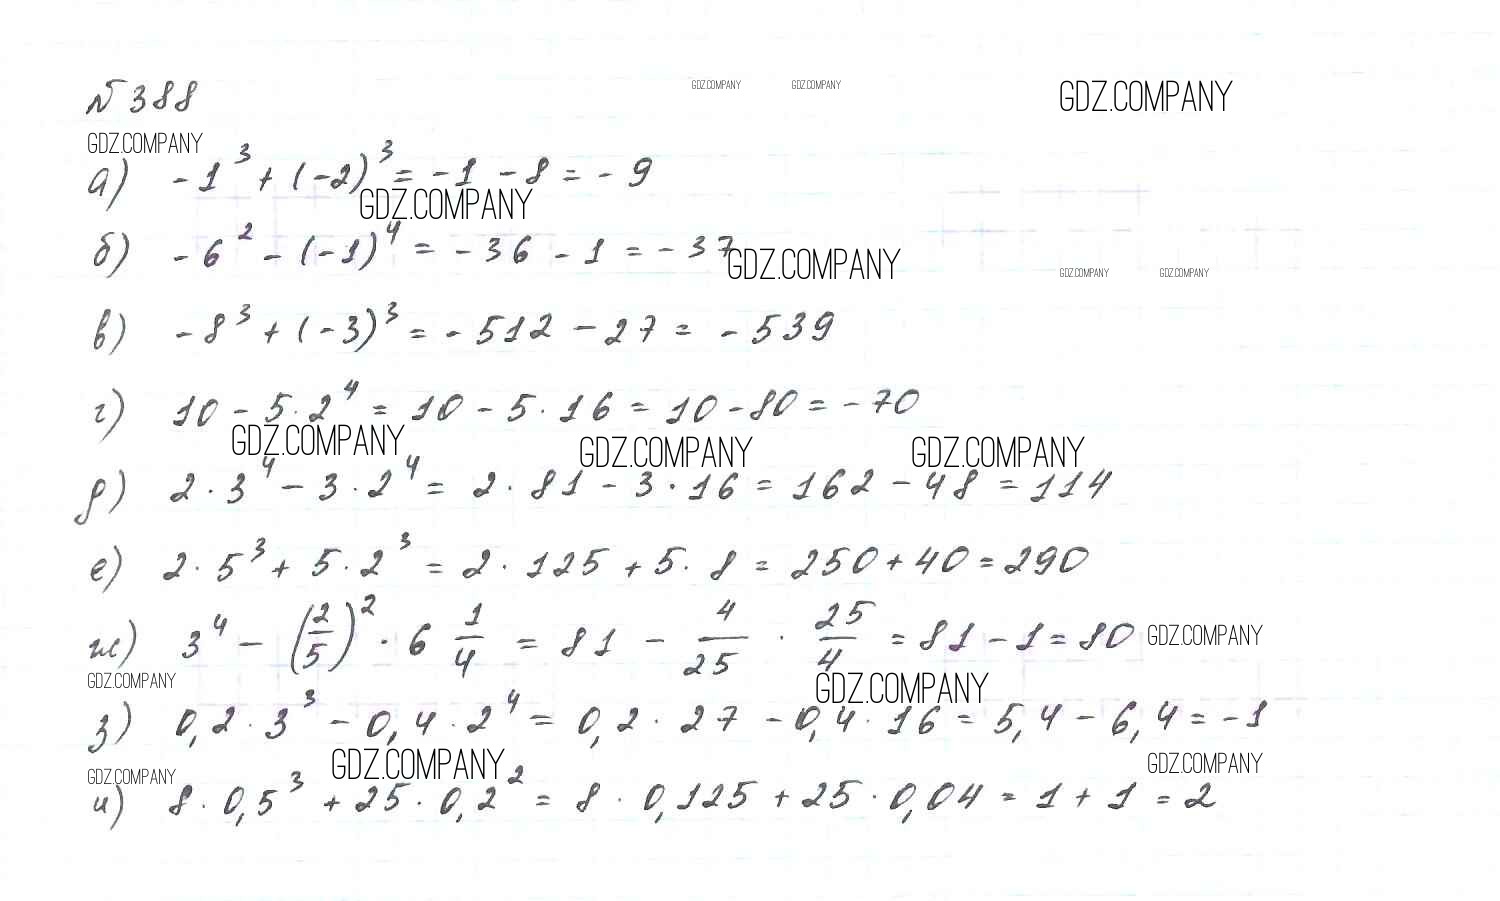 №388
GDZ.COMPANY GDZ.COMPANY GDZ.COMPANY
GDZ.COMPANY
а) -1³ + (-2)³ = -1 - 8 = -9
GDZ.COMPANY
б) -6² - (-1)⁴ = -36 - 1 = -37
GDZ.COMPANY
GDZ.COMPANY GDZ.COMPANY
в) -8³ + (-3)³ = -512 - 27 = -539
г) 10 - 5·2⁴ = 10 - 5·16 = 10 - 80 = -70
GDZ.COMPANY GDZ.COMPANY GDZ.COMPANY
д) 2·3⁴ - 3·2⁴ = 2·81 - 3·16 = 162 - 48 = 114
е) 2·5³ + 5·2³ = 2·125 + 5·8 = 250 + 40 = 290
ж) 3⁴ - (2/5)²·6 1/4 = 81 - 4/25 · 25/4 = 81 - 1 = 80 GDZ.COMPANY
GDZ.COMPANY GDZ.COMPANY
з) 0,2·3³ - 0,4·2⁴ = 0,2·27 - 0,4·16 = 5,4 - 6,4 = -1
GDZ.COMPANY GDZ.COMPANY GDZ.COMPANY
и) 8·0,5³ + 25·0,2² = 8·0,125 + 25·0,04 = 1 + 1 = 2